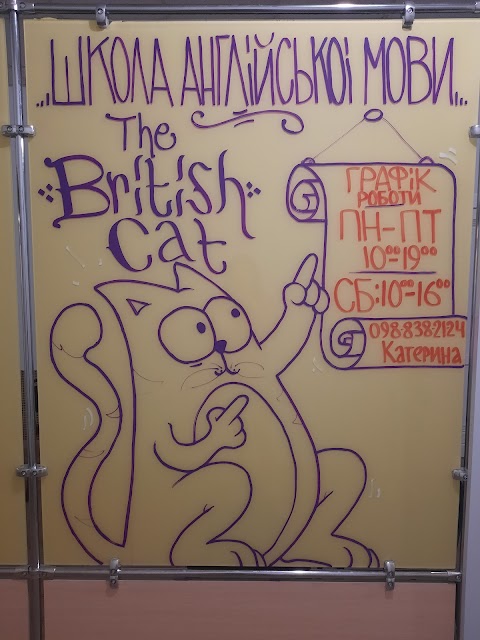 ...ШКОЛА АНГЛІЙСЬКОЇ МОВИ...
The
British
Cat
ГРАФІК
РОБОТИ
ПН-ПТ
10⁰⁰-19⁰⁰
СБ:10⁰⁰-16⁰⁰
098-838-2124
Катерина